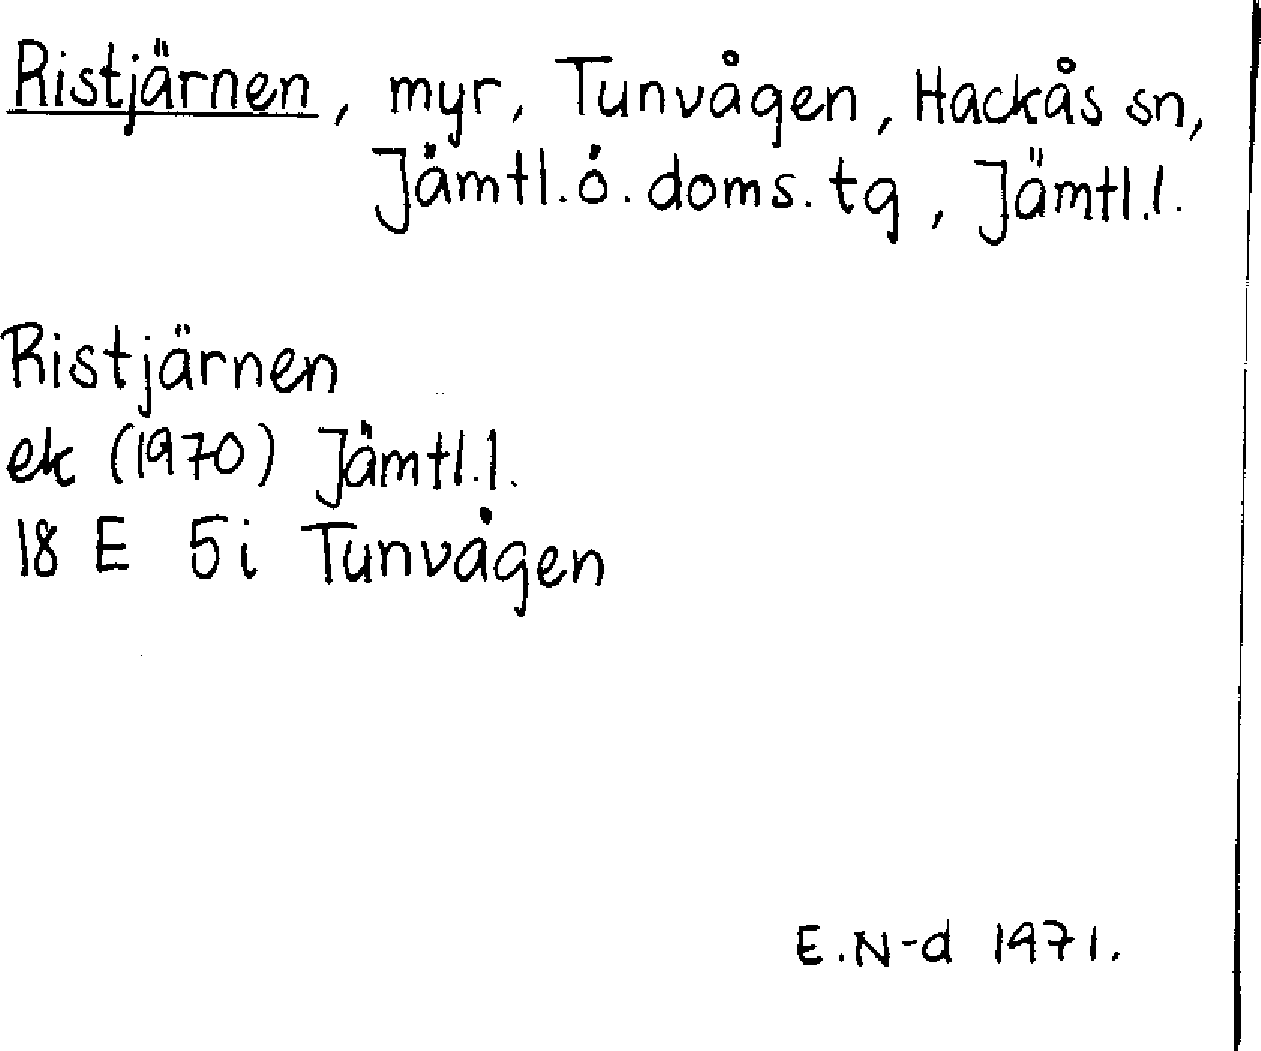 Ristjärnen, myr, Tunvågen, Hackås sn,
Jämtl.ö.doms.tg, Jämtl.l.
Ristjärnen
ek (1970) Jämtl.l.
18 E 5i Tunvågen
E.N-d 1971.